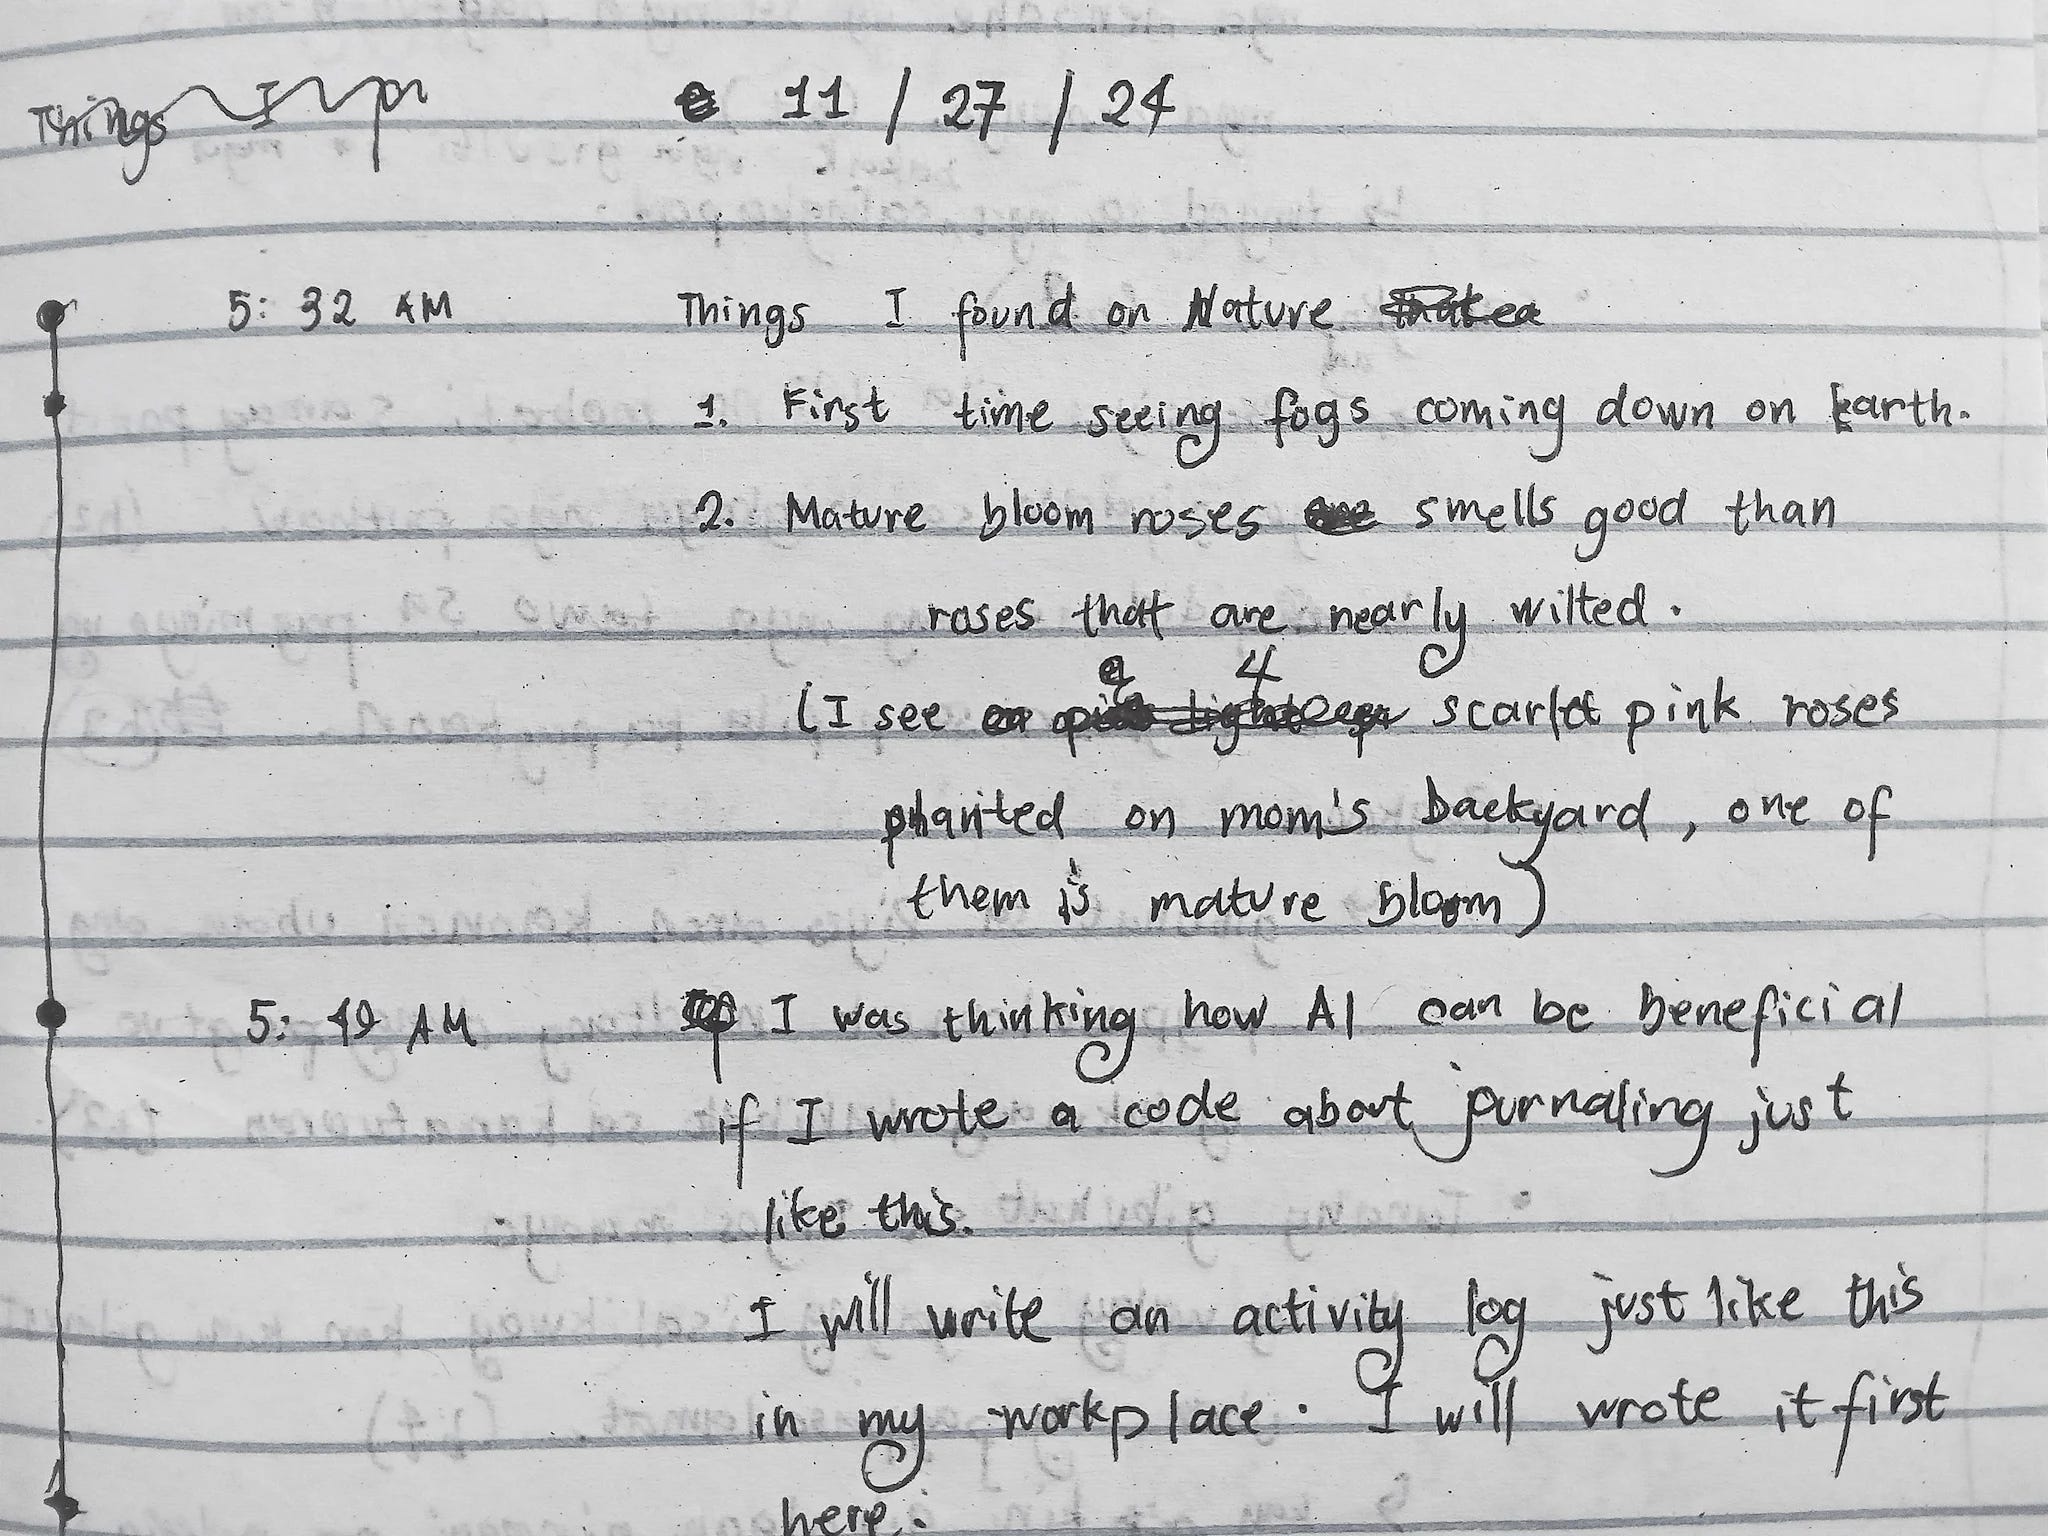 Things I
11 / 27 / 24
5:32 AM Things I found on Nature
1. First time seeing fogs coming down on Earth.
2. Mature bloom roses smells good than
roses that are nearly wilted.
4
(I see scarlet pink roses
planted on mom's backyard, one of
them is mature bloom)
5:49 AM I was thinking how AI can be beneficial
if I wrote a code about journaling just
like this.
I will write an activity log just like this
in my workplace. I will wrote it first
here.